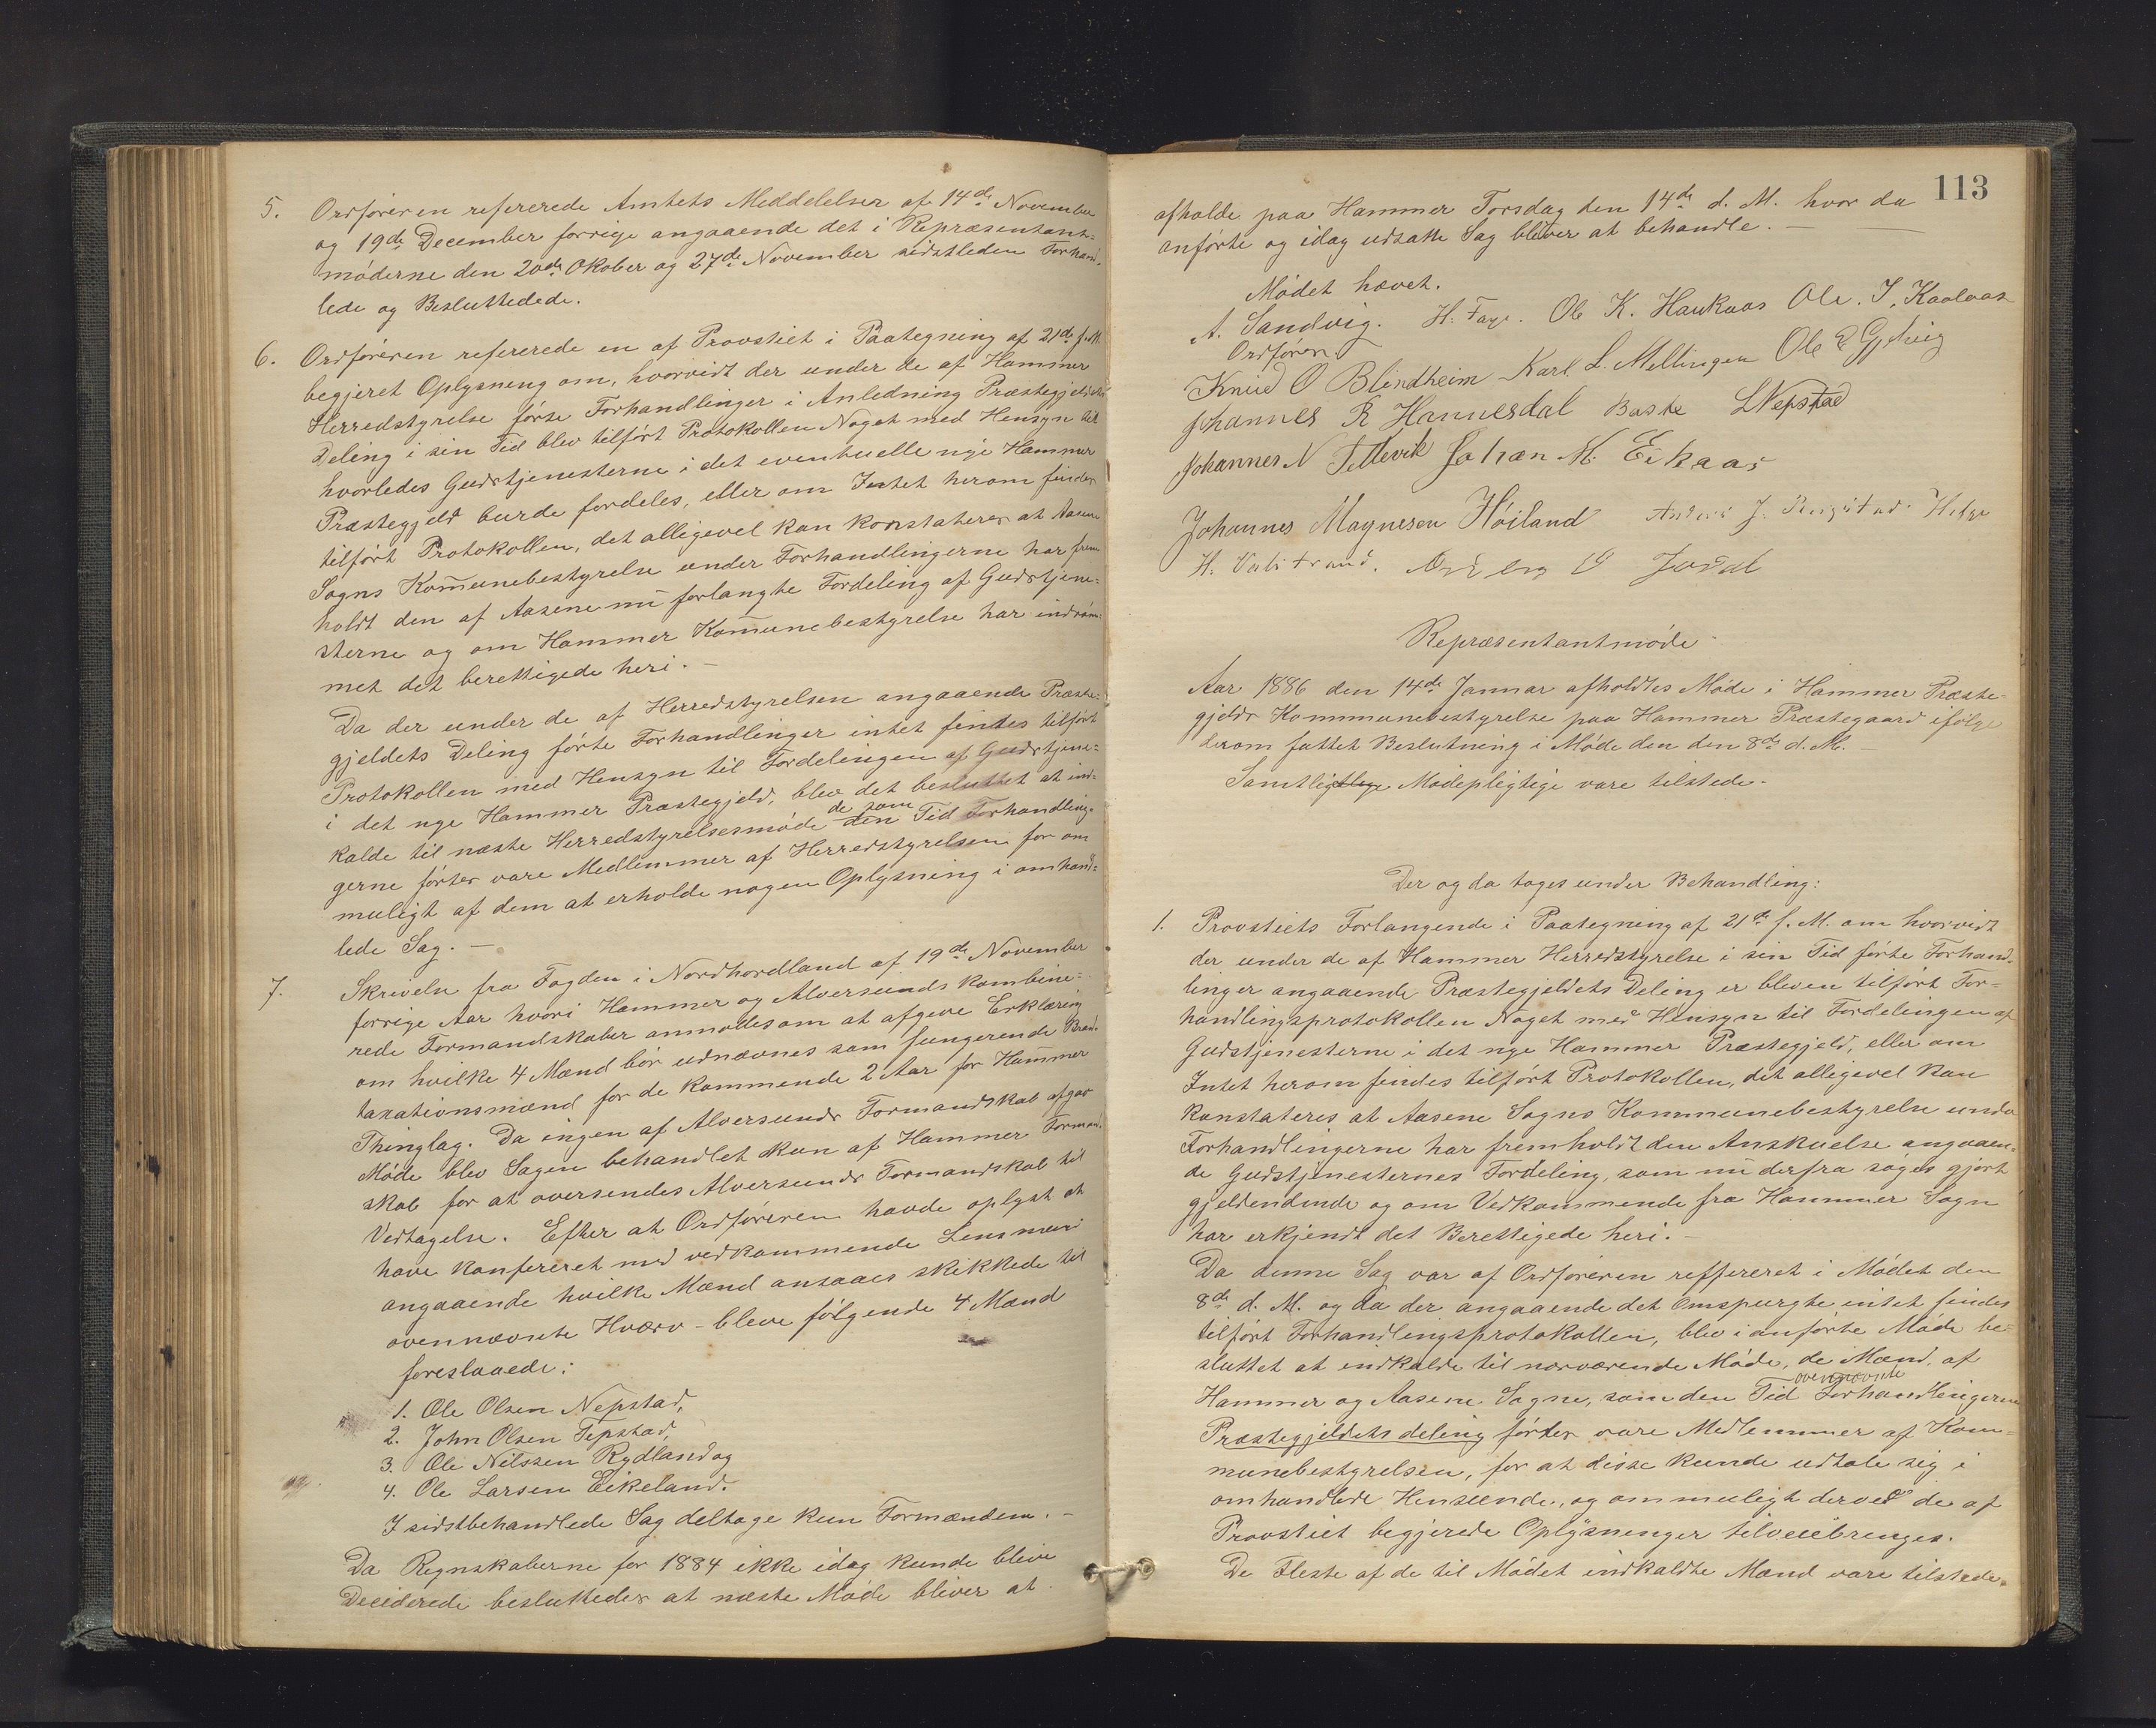 5. Ordføreren refererede Amtets Meddelelser af 14de November
og 19de December forrige angaaende det i Repræsentant=
møderne den 20de Okober og 27de November sidstleden Forhand=
lede og Besluttedede.
6. Ordføreren refererede en af Provstiet i Paategning af 21de f. M.
begjeret Oplysning om, hvorvidt der under de af Hammer
Herredstyrelse førte Forhandlinger i Anledning Præstegjeldets
Deling i sin Tid blev tilført Protokollen Noget med Hensyn til
hvorledes Gudstjenesterne i det eventuelle nye Hammer
Præstegjeld burde fordeles, eller om Intet herom findes
tilført Protokollen, det alligevel kan konstateres at Aasene
Sogns Kom̄unebestyrelse under Forhandlingerne har frem
holdt den af Aasene nu forlangte Fordeling af Gudstjene=
sterne og om Hammer Kom̄unebestyrelse har indrøm=
met det berettigede heri. —
Da der under de af Herredstyrelsen angaaende Præste=
gjeldets Deling førte Forhandlinger intet findes tilført
Protokollen med Hensyn til Fordelingen af Gudstjene=
i det nye Hammer Præstegjeld, blev det besluttet at ind=
de som
kalde til næste Herredstyrelsesmøde den Tid Forhandling=
gerne førtes vare Medlemmer af Herredstyrelsen for om
muligt af dem at erholde nogen Oplysning i omhand=
lede Sag. —
7. Skrivelse fra Fogden i Nordhordland af 19de November
forrige Aar hvori Hammer og Alversunds kombine=
rede Formandskaber anmodes om at afgive Erklæring
om hvilke 4 Mænd bør udnævnes som fungerende Brand
taxationsmænd for de kommende 2 Aar for Ham̄er
Thinglag. Da ingen af Alversunds Formandskab afgav
Møde blev Sagen behandlet kun af Hammer Formand
skab for at oversendes Alversunds Formandskab til
Vedtagelse. Efter at Ordføreren havde oplyst at
have konfereret med vedkommende Lensmænd
angaaende hvilke Mænd ansaaes skikkede til
ovennævnte Hværv - bleve følgende 4 Mænd
foreslaaede:
1. Ole Olsen Nepstad,
2. John Olsen Tepstad,
3. Ole Nilssen Rydland og
4. Ole Larsen Eikeland.
I sidstbehandlede Sag deltoge kun Formændene. —
Da Regnskaberne for 1884 ikke idag kunde blive
Deciderede besluttedes at næste Møde bliver at
113
afholde paa Hammer Torsdag den 14de d. M. hvor da
anførte og idag udsatte Sag bliver at behandle. —
Mødet hævet.
A. Sandvig. H. Faye. Ole K. Haukaas Ole. I. Kaalaas
Ordfører
Knud O Blindheim Karl L. Mellingen Ole E Gjelvig
Johannes R Hannesdal Baste LNepstad
Johannes N Tellevik Johan M. Eikaas
Johannes Magnesen Høiland Anders J. Helge
H. Valestrand. Jordal
Repræsentantmøde
Aar 1886 den 14de Januar afholdtes Møde i Hammer Præste=
gjelds Kommunebestyrelse paa Hammer Præstegaard ifølge
derom fattet Beslutning i Møde den den 8de d. M. —
Samtlige Mødepligtige vare tilstede.
Der og da toges under Behandling:
1. Provstiets Forlangende i Paategning af 21de f. M. om hvorvidt
der under de af Hammer Herredstyrelse i sin Tid førte Forhand=
linger angaaende Præstegjeldets Deling er bleven tilført For=
handlingsprotokollen Noget med Hensyn til Fordelingen af
Gudstjenesterne i det nye Hammer Præstegjeld, eller om
Intet herom findes tilført Protokollen, det alligevel kan
konstateres at Aasene Sogns Kommunebestyrelse under
Forhandlingerne har fremholdt den Anskuelse angaaen=
de Gudstjenesternes Fordeling, som nu derfra søges gjort
gjeldendende og om Vedkommende fra Hammer Sogn
har erkjendt det Berettigede heri. —
Da denne Sag var af Ordføreren reffereret i Mødet den
8de d. M. og da der angaaende det Omspurgte intet findes
tilført Forhandlingsprotokollen, blev i anførte Møde be=
sluttet at indkalde til nærværende Møde, de Mænd, af
ovennævnte
Hammer og Aasene Sogne, som den Tid Forhandlingerne
Præstegjeldets deling førtes vare Medlemmer af Kom=
munebestyrelsen, for at disse kunde udtale sig i
omhandlede Henseende, og om muligt derved de af
Provstiet begjerede Oplysninger tilveiebringes.
De Fleste af de til Mødet indkaldte Mænd vare tilstede.